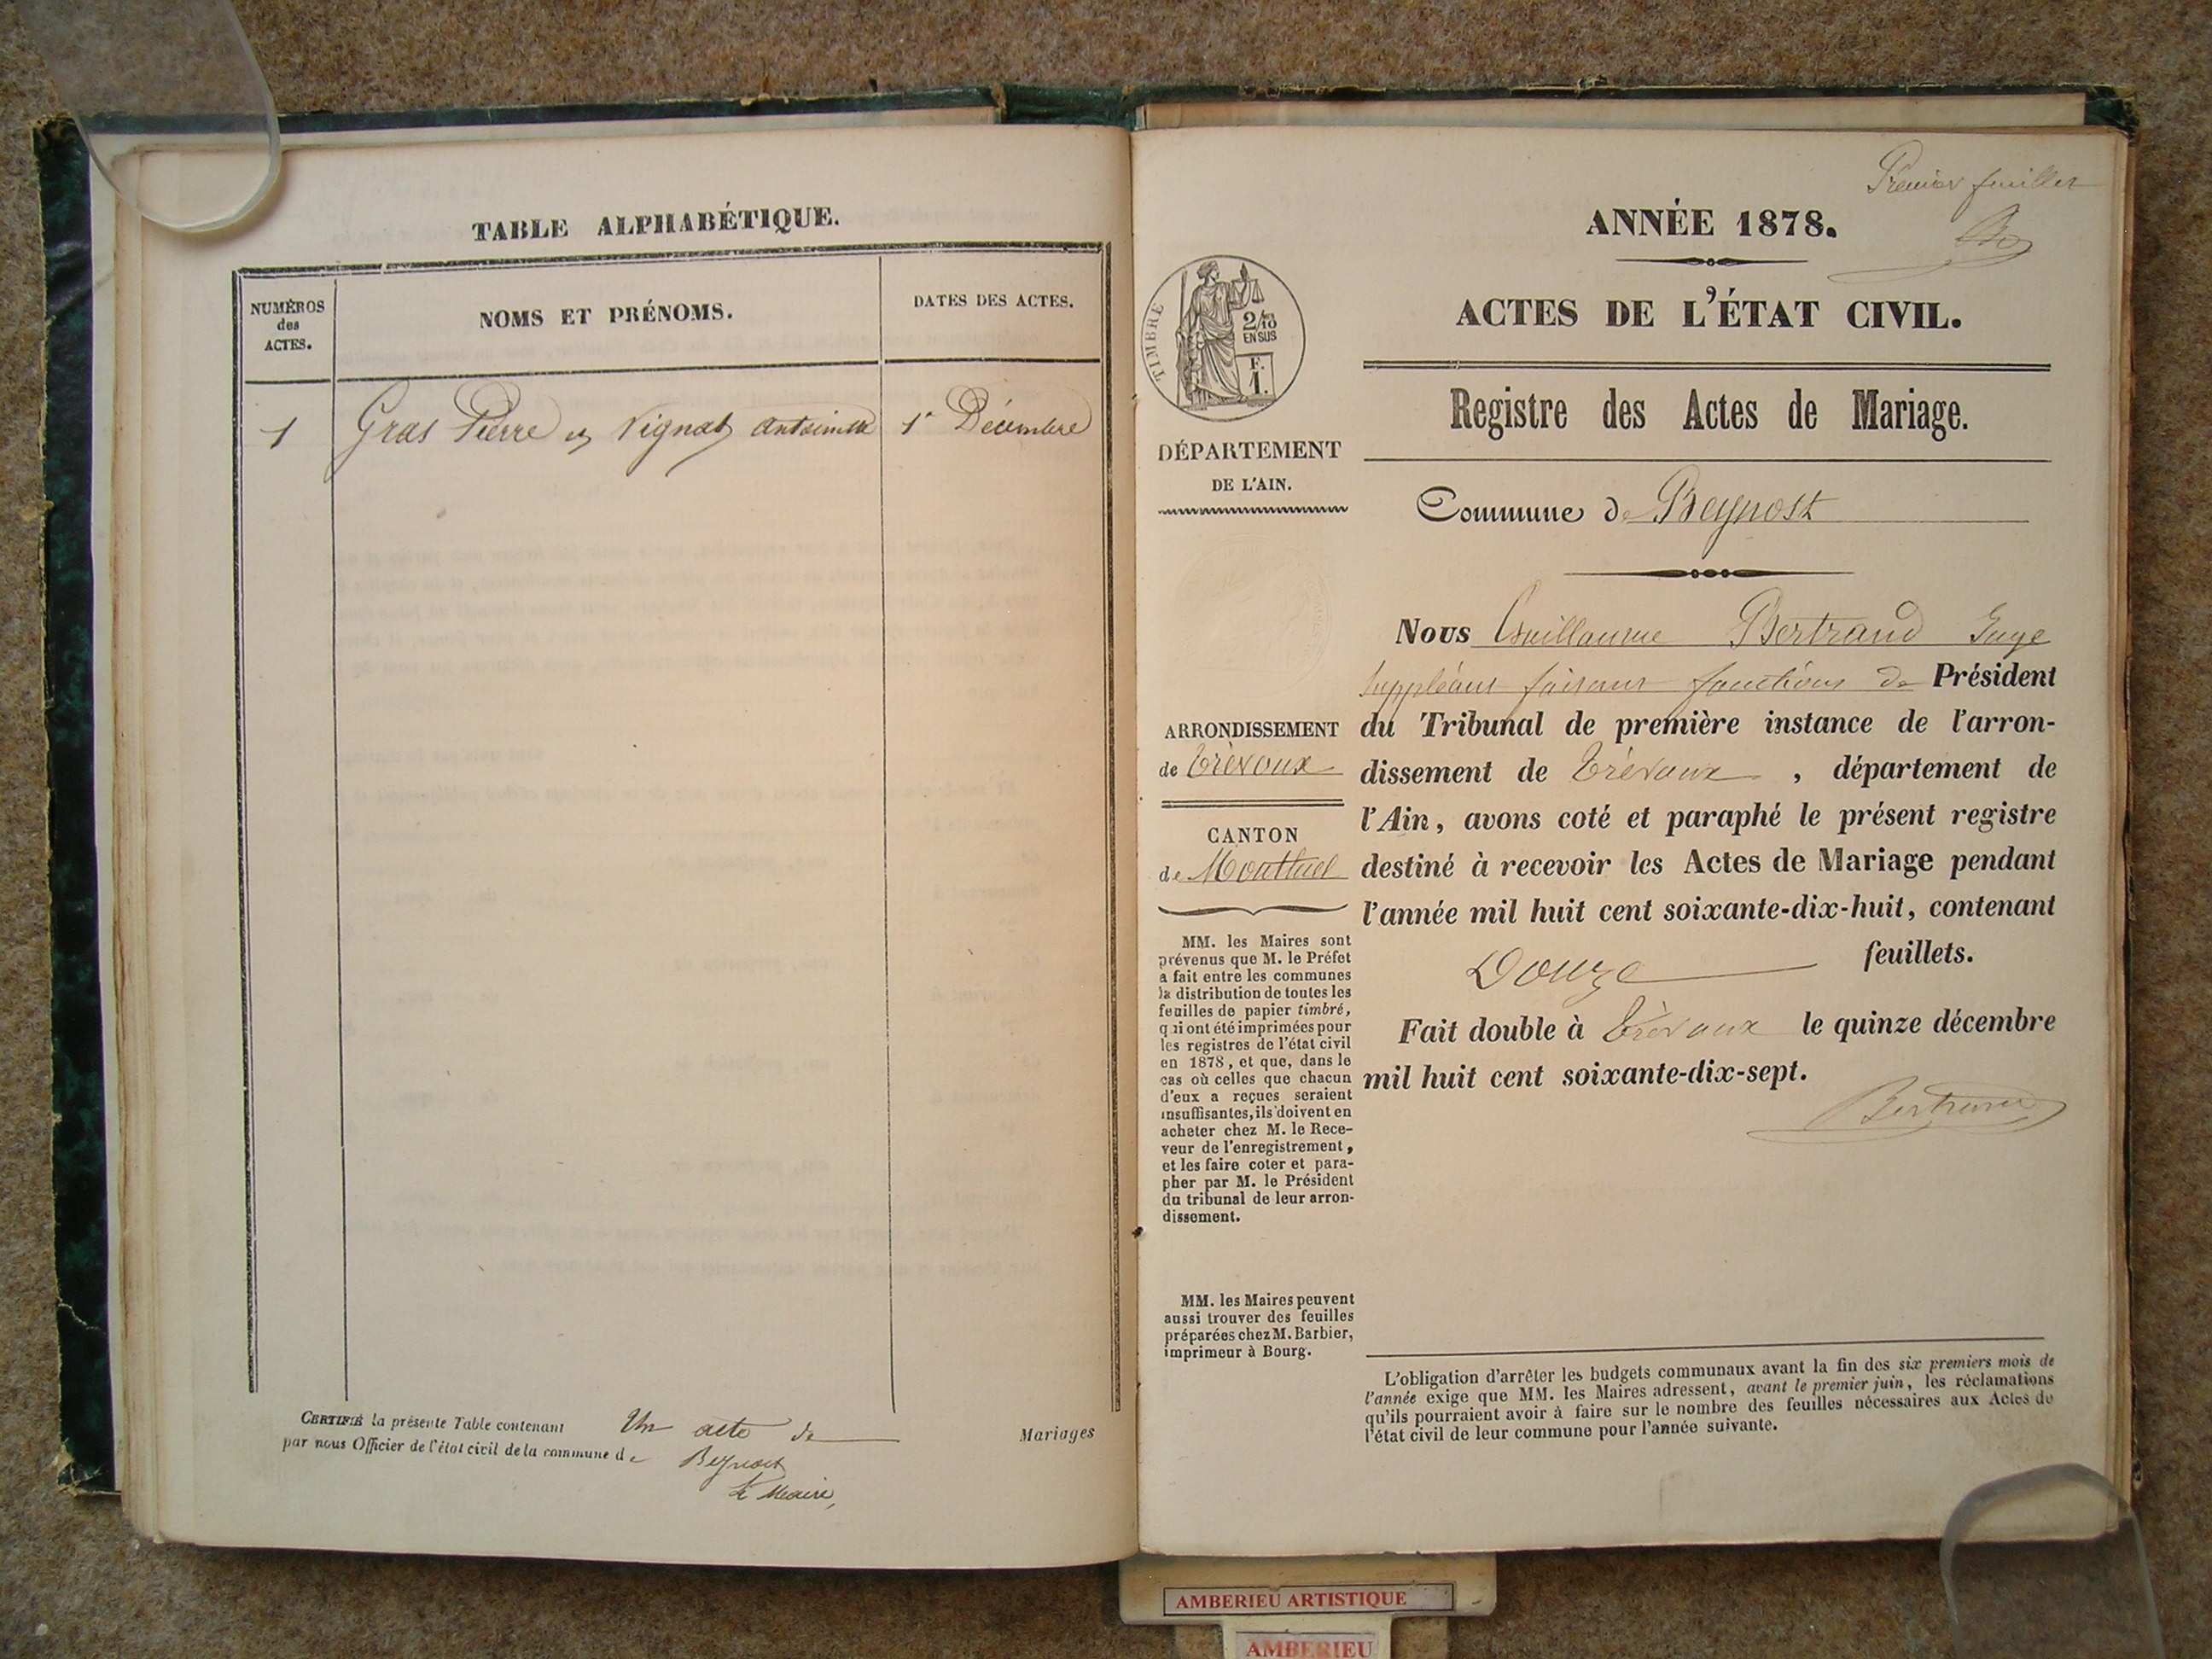 TABLE ALPHABÉTIQUE.
NUMÉROS
des
ACTES.
NOMS ET PRÉNOMS.
DATES DES ACTES.
1 Gras Pierre et Vignat Antoinette 1er Décembre
CERTIFIÉ la présente Table contenant Un acte de Mariages
par nous Officier de l'état civil de la commune de Beynost
Le Maire,
Premier feuillet
ANNÉE 1878.
ACTES DE L'ÉTAT CIVIL.
Registre des Actes de Mariage.
TIMBRE
2/10
EN SUS
F.
1.
DÉPARTEMENT
DE L'AIN.
Commune de Beynost
ARRONDISSEMENT
de Trévoux
CANTON
de Montluel
MM. les Maires sont
prévenus que M. le Préfet
a fait entre les communes
la distribution de toutes les
feuilles de papier timbré,
qui ont été imprimées pour
les registres de l'état civil
en 1878, et que, dans le
cas où celles que chacun
d'eux a reçues seraient
insuffisantes, ils doivent en
acheter chez M. le Rece-
veur de l'enregistrement,
et les faire coter et para-
pher par M. le Président
du tribunal de leur arron-
dissement.
MM. les Maires peuvent
aussi trouver des feuilles
préparées chez M. Barbier,
imprimeur à Bourg.
Nous Guillaume Bertrand Juge
suppléant faisant fonctions de Président
du Tribunal de première instance de l'arron-
dissement de Trévoux, département de
l'Ain, avons coté et paraphé le présent registre
destiné à recevoir les Actes de Mariage pendant
l'année mil huit cent soixante-dix-huit, contenant
Douze feuillets.
Fait double à Trévoux le quinze décembre
mil huit cent soixante-dix-sept.
Bertrand
L'obligation d'arrêter les budgets communaux avant la fin des six premiers mois de
l'année exige que MM. les Maires adressent, avant le premier juin, les réclamations
qu'ils pourraient avoir à faire sur le nombre des feuilles nécessaires aux Actes de
l'état civil de leur commune pour l'année suivante.
AMBERIEU ARTISTIQUE
AMBERIEU